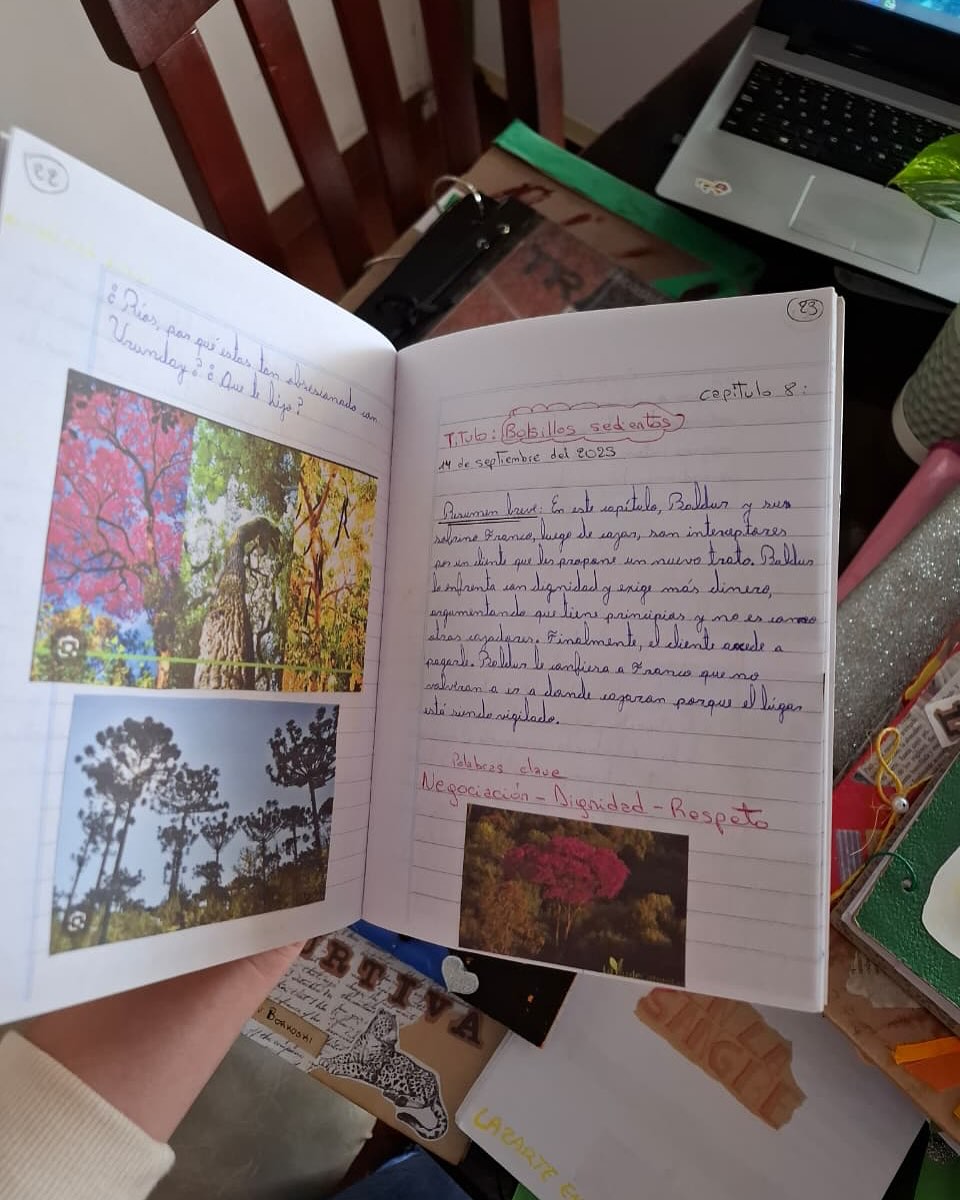 22
¿Ríos, por qué estas tan obsesionado con
Urunday? ¿Que te hizo?
23
capítulo 8:
Título: Bolsillos sedientos
14 de septiembre del 2025
Resumen breve: En este capítulo, Baldur y su
sobrino Franco, luego de cazar, son interceptores
por un cliente que les propone un nuevo trato. Baldur
lo enfrenta con dignidad y exige más dinero,
argumentando que tiene principios y no es como
otros cazadores. Finalmente, el cliente accede a
pagarle. Baldur le confiesa a Franco que no
volveran a ir a donde cazaron porque el lúgar
está siendo vigilado.
Palabras clave
Negociación - Dignidad - Respeto
TR
IRTIVA
BORKOSKI
SANGLE
LAZARTE